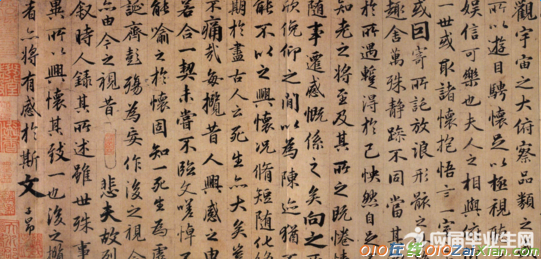 觀宇宙之大俯察品類之
所以遊目騁懷足以極視聽
娛信可樂也夫人之相與
一世或取諸懷抱悟言一室
或因寄所託放浪形骸之
趣舍萬殊靜躁不同當其
於所遇暫得於己怏然自
知老之將至及其所之既惓情
隨事遷感慨係之矣向之所
欣俛仰之間以為陳迹猶不
能不以之興懷況脩短隨化
期於盡古人云死生亦大矣豈
不痛哉每攬昔人興感之由
若合一契未嘗不臨文嗟悼
能喻之於懷固知一死生為虛
誕齊彭殤為妄作後之視今
亦由今之視昔 悲夫故列
敘時人錄其所述雖世殊事
異所以興懷其致一也後之攬
者亦將有感於斯文 子昂
应届毕业生网
010在线 010zaixian.com